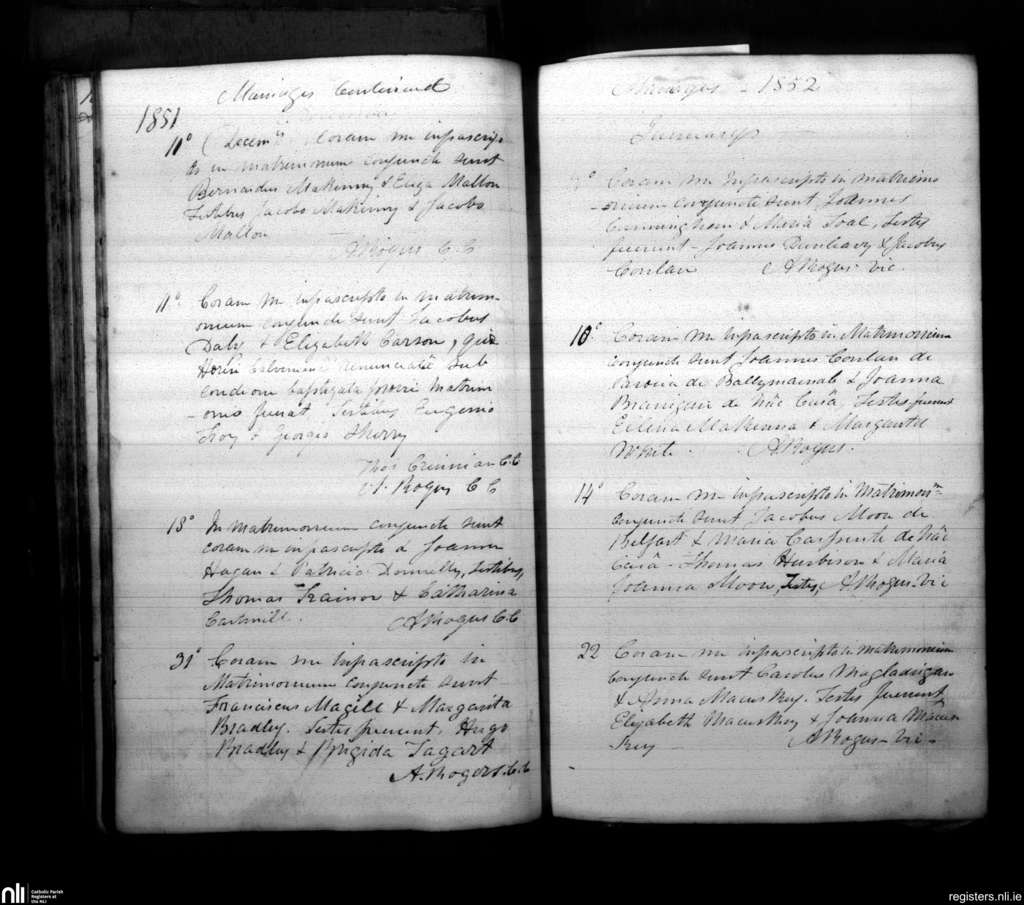 Marriages Continued
1851
11° (Decem. Coram me infrascrip
to in matrimonium conjuncti sunt
Bernardus MaKenny & Eliza Mallon
Testibus Jacobo MaKinny & Jacobo
Mallon
A Rogers C.C
11° Coram me infrascripto in matrim-
onium conjuncti sunt Jacobus
Daly & Elizabeth Carson, quæ
Calvinianæ sub
conditione baptizata matrim
-onio fuerat Testibus Eugenio
Troy & Georgio Sherry
Thos Crinnian C.C
A. Rogers C C
13° In matrimonium conjuncti sunt
coram me infrascripto a Joanna
Hagan & Patricio Donnelly, testibus,
Thomas Trainor & Catharina
Cartmill. A Rogers C.C
31° Coram me infrascripto in
Matrimonium conjuncti sunt
Franciscus Magill & Margarita
Bradley. Testes fuerunt, Hugo
Bradley & Brigida Tagart
A. Rogers. C.C.
Marriages - 1852
January
Coram me Infrascripto in matrimo
-onium conjuncti sunt, Joannes
Cunningham & Maria Toal, Testes
fuerunt - Joannes Dunleavy & Jacobus
Conlan A Rogers Vic.
10° Coram me infrascripto in Matrimonium
conjuncti sunt Joannes Conlan de
Parocia de Ballymacnab & Joanna
Branigan de hac Curâ, Testes fuerunt
Ellena MaKenna & Margarita
White. A Rogers.
14° Coram me infrascripto in Matrimonm
conjuncti sunt Jacobus Moon de
Belfast & Maria Carpente de hâc
Curâ - Thomas Hurbison & Maria
Joanna Moon, Testes, A Rogers Vic
22 Coram me infrascripto in matrimonium
conjuncti sunt Carolus Magladrigan
& Anna Macusker. Testes fuerunt
Elizabeth Macusker & Joanna Macus
ker - A Rogers - Vic -
nli
Catholic Parish
Registers at
the NLI
registers.nli.ie